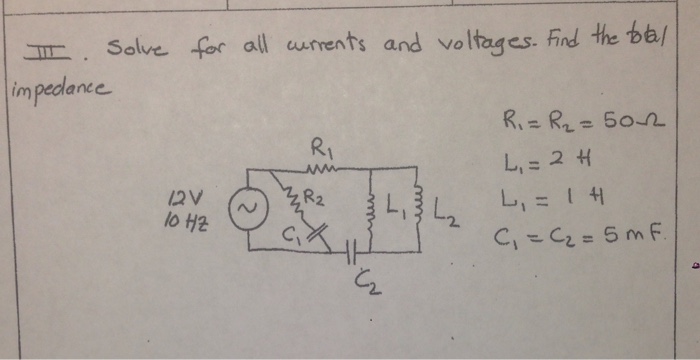 III. Solve for all currents and voltages. Find the total
impedance
R₁ = R₂ = 50Ω
L₁ = 2 H
L₁ = 1 H
C₁ = C₂ = 5 mF.
R₁
12V
10 HZ
R₂
C₁
L₁
L₂
C₂